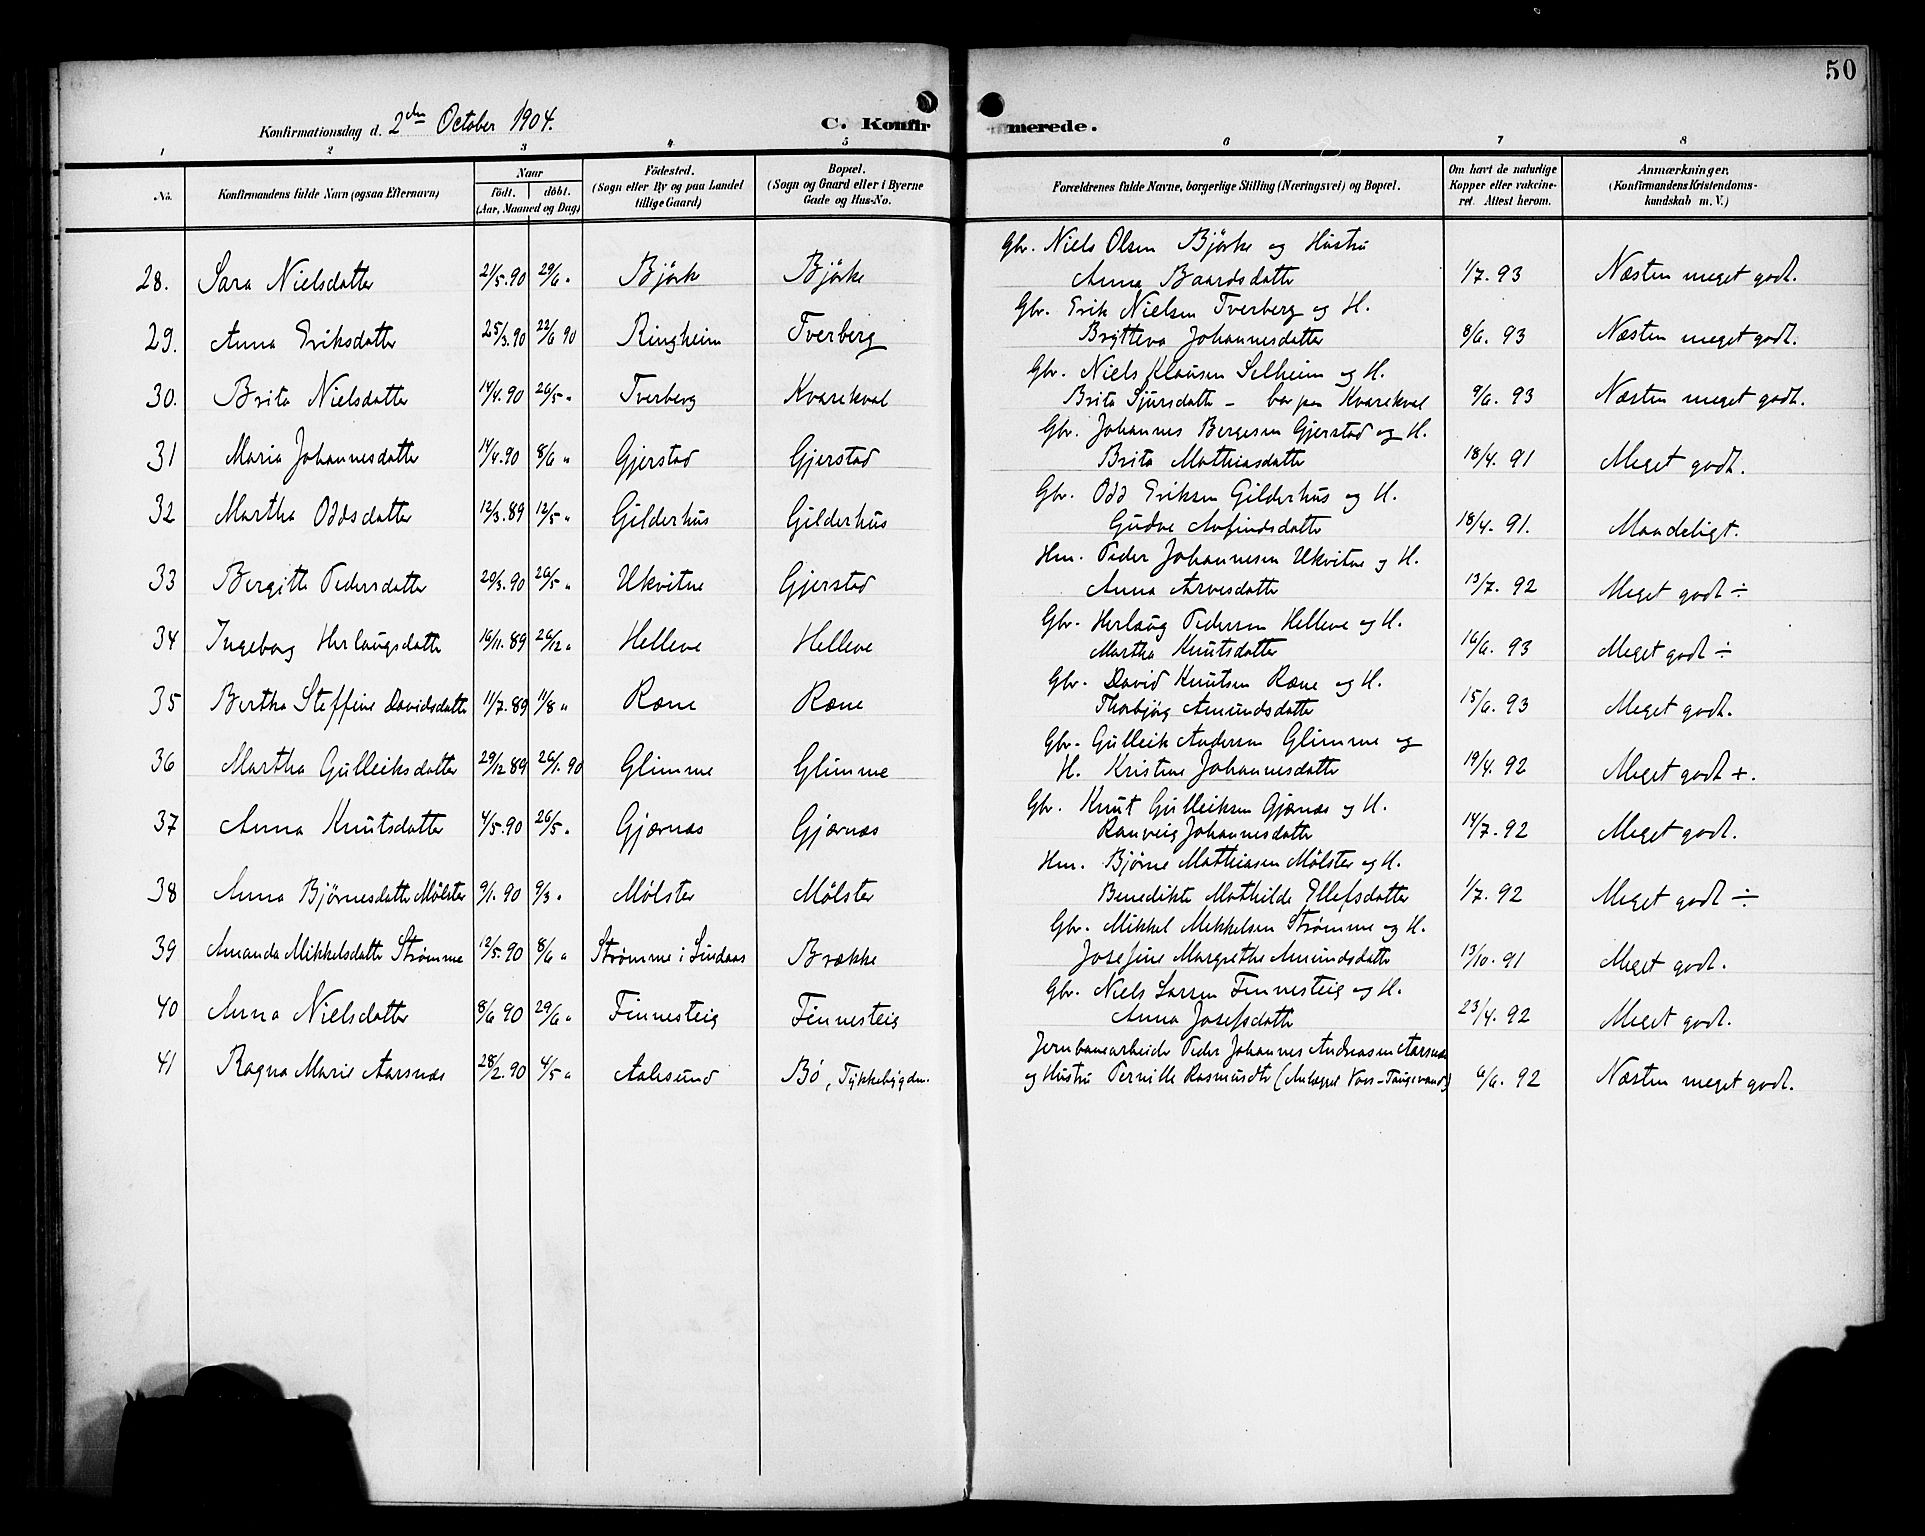 50
Konfirmationsdag d. 2den October 1904. C. Konfirmerede.
1 2 3 4 5 6 7 8
No. Konfirmandens fulde Navn (ogsaa Efternavn) Naar født. døbt. (Aar, Maaned og Dag) Fødested. (Sogn eller By og paa Landet tillige Gaard) Bopæl. (Sogn og Gaard eller i Byerne Gade og Hus-No. Forældrenes fulde Navne, borgerlige Stilling (Næringsvei) og Bopæl. Om havt de naturlige Kopper eller vakcineret. Attest herom. Anmærkninger. (Konfirmandens Kristendomskundskab m. V.)
Gbr. Niels Olsen Bjørke og Hustru
28. Sara Nielsdatter 21/5.90 29/6 " Bjørke Bjørke Anna Baardsdatter 1/7. 93 Næsten meget godt.
Gbr. Erik Nielsen Tverberg og H.
29. Anna Eriksdatter 25/3.90 22/6 90 Ringheim Tverberg Brytteva Johannesdatter 8/6. 93 Næsten meget godt.
Gbr. Niels Klausen Selheim og H.
30. Brita Nielsdatter 14/4.90 26/5 " Tverberg Kvarekval Brita Sjursdatter - bor paa Kvarekval 9/6. 93 Næsten meget godt.
Gbr. Johannes Bergesen Gjerstad og H.
31 Maria Johannesdatter 14/4.90 8/6 " Gjerstad Gjerstad Brita Mathiasdatter 18/4. 91 Meget godt.
Gbr. Odd Eriksen Gilderhus og H.
32 Martha Oddsdatter 12/3.89 12/5 " Gilderhus Gilderhus Gudve Arfindsdatter 18/4. 91. Maadeligt.
Hm. Peder Johannesen Ukvitne og H.
33 Bergitte Pedersdatter 20/3.90 26/5 " Ukvitne Gjerstad Anna Arvesdatter 13/7. 92 Meget godt ÷
Gbr. Herlaug Pedersen Helleve og H.
34 Ingeborg Herlaugsdatter 16/11.89 26/12 " Helleve Helleve Martha Knutsdatter 16/6. 93 Meget godt ÷
Gbr. David Knutsen Rene og H.
35 Bertha Steffine Davidsdatter 11/7.89 11/8 " Rene Rene Thorbjørg Amundsdatter 15/6. 93 Meget godt.
Gbr. Gulleik Andersen Glimme og
36 Martha Gulleiksdatter 29/12 89 26/1.90 Glimme Glimme H. Kristine Johannesdatter 19/4. 92 Meget godt +.
Gbr. Knut Gulleiksen Gjærnæs og H.
37 Anna Knutsdatter 4/5.90 26/5 " Gjærnæs Gjærnæs Ranveig Johannesdatter 14/7. 92 Meget godt.
Hm. Bjørne Mathiasen Mølster og H.
38 Anna Bjørnesdatter Mølster 9/1.90 9/3 " Mølster Mølster Benedikte Mathilde Ellefsdatter 1/7. 92 Meget godt ÷
Gbr. Mikkel Mikkelsen Strømme og H.
39 Amanda Mikkelsdatter Strømme 12/5.90 8/6 " Strømme i Lindaas Brække Josefine Margrethe Amundsdatter 13/10. 91 Meget godt.
Gbr. Niels Larsen Finnesteig og H.
40 Anna Nielsdatter 8/6 90 29/6 " Finnesteig Finnesteig Anna Josefsdatter 23/4. 92 Meget godt.
Jernbanearbeider Peder Johannes Andreasen Aarsnæs
41 Ragna Marie Aarsnæs 28/2.90 4/5 " Aalesund Bø, Tykkebygdn. og Hustru Pernille Rasmusdtr (Anlægget Voss-Taugevand) 6/6. 92 Næsten meget godt.